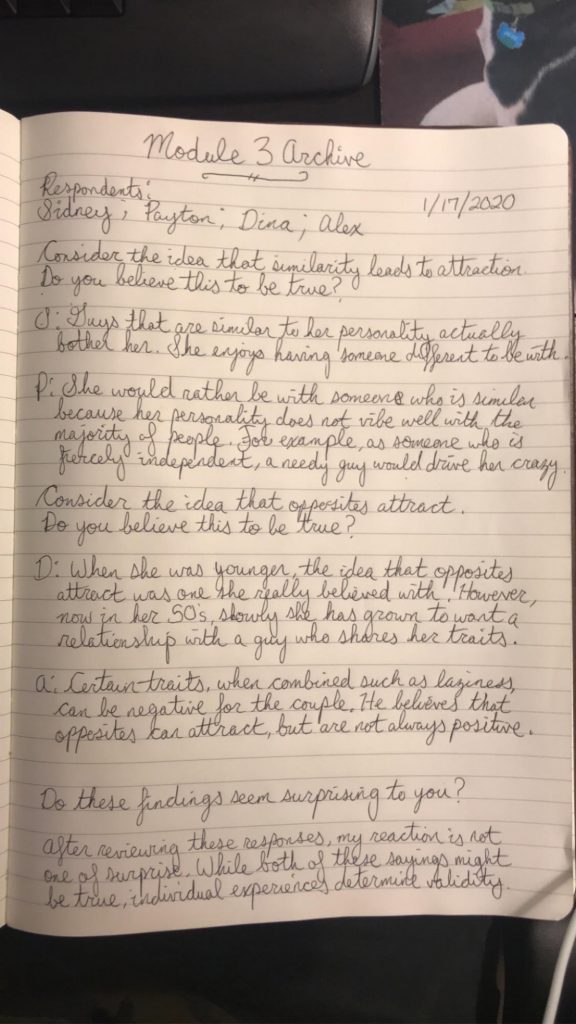 Module 3 Archive
Respondents:
1/17/2020
Sidney; Payton; Dina; Alex
Consider the idea that similarity leads to attraction.
Do you believe this to be true?
S: Guys that are similar to her personality actually
bother her. She enjoys having someone different to be with.
P: She would rather be with someone who is similar
because her personality does not vibe well with the
majority of people. For example, as someone who is
fiercely independent, a needy guy would drive her crazy.
Consider the idea that opposites attract.
Do you believe this to be true?
D: When she was younger, the idea that opposites
attract was one she really believed with. However,
now in her 50's, slowly she has grown to want a
relationship with a guy who shares her traits.
A: Certain traits, when combined such as laziness,
can be negative for the couple. He believes that
opposites can attract, but are not always positive.
Do these findings seem surprising to you?
After reviewing these responses, my reaction is not
one of surprise. While both of these sayings might
be true, individual experiences determine validity.